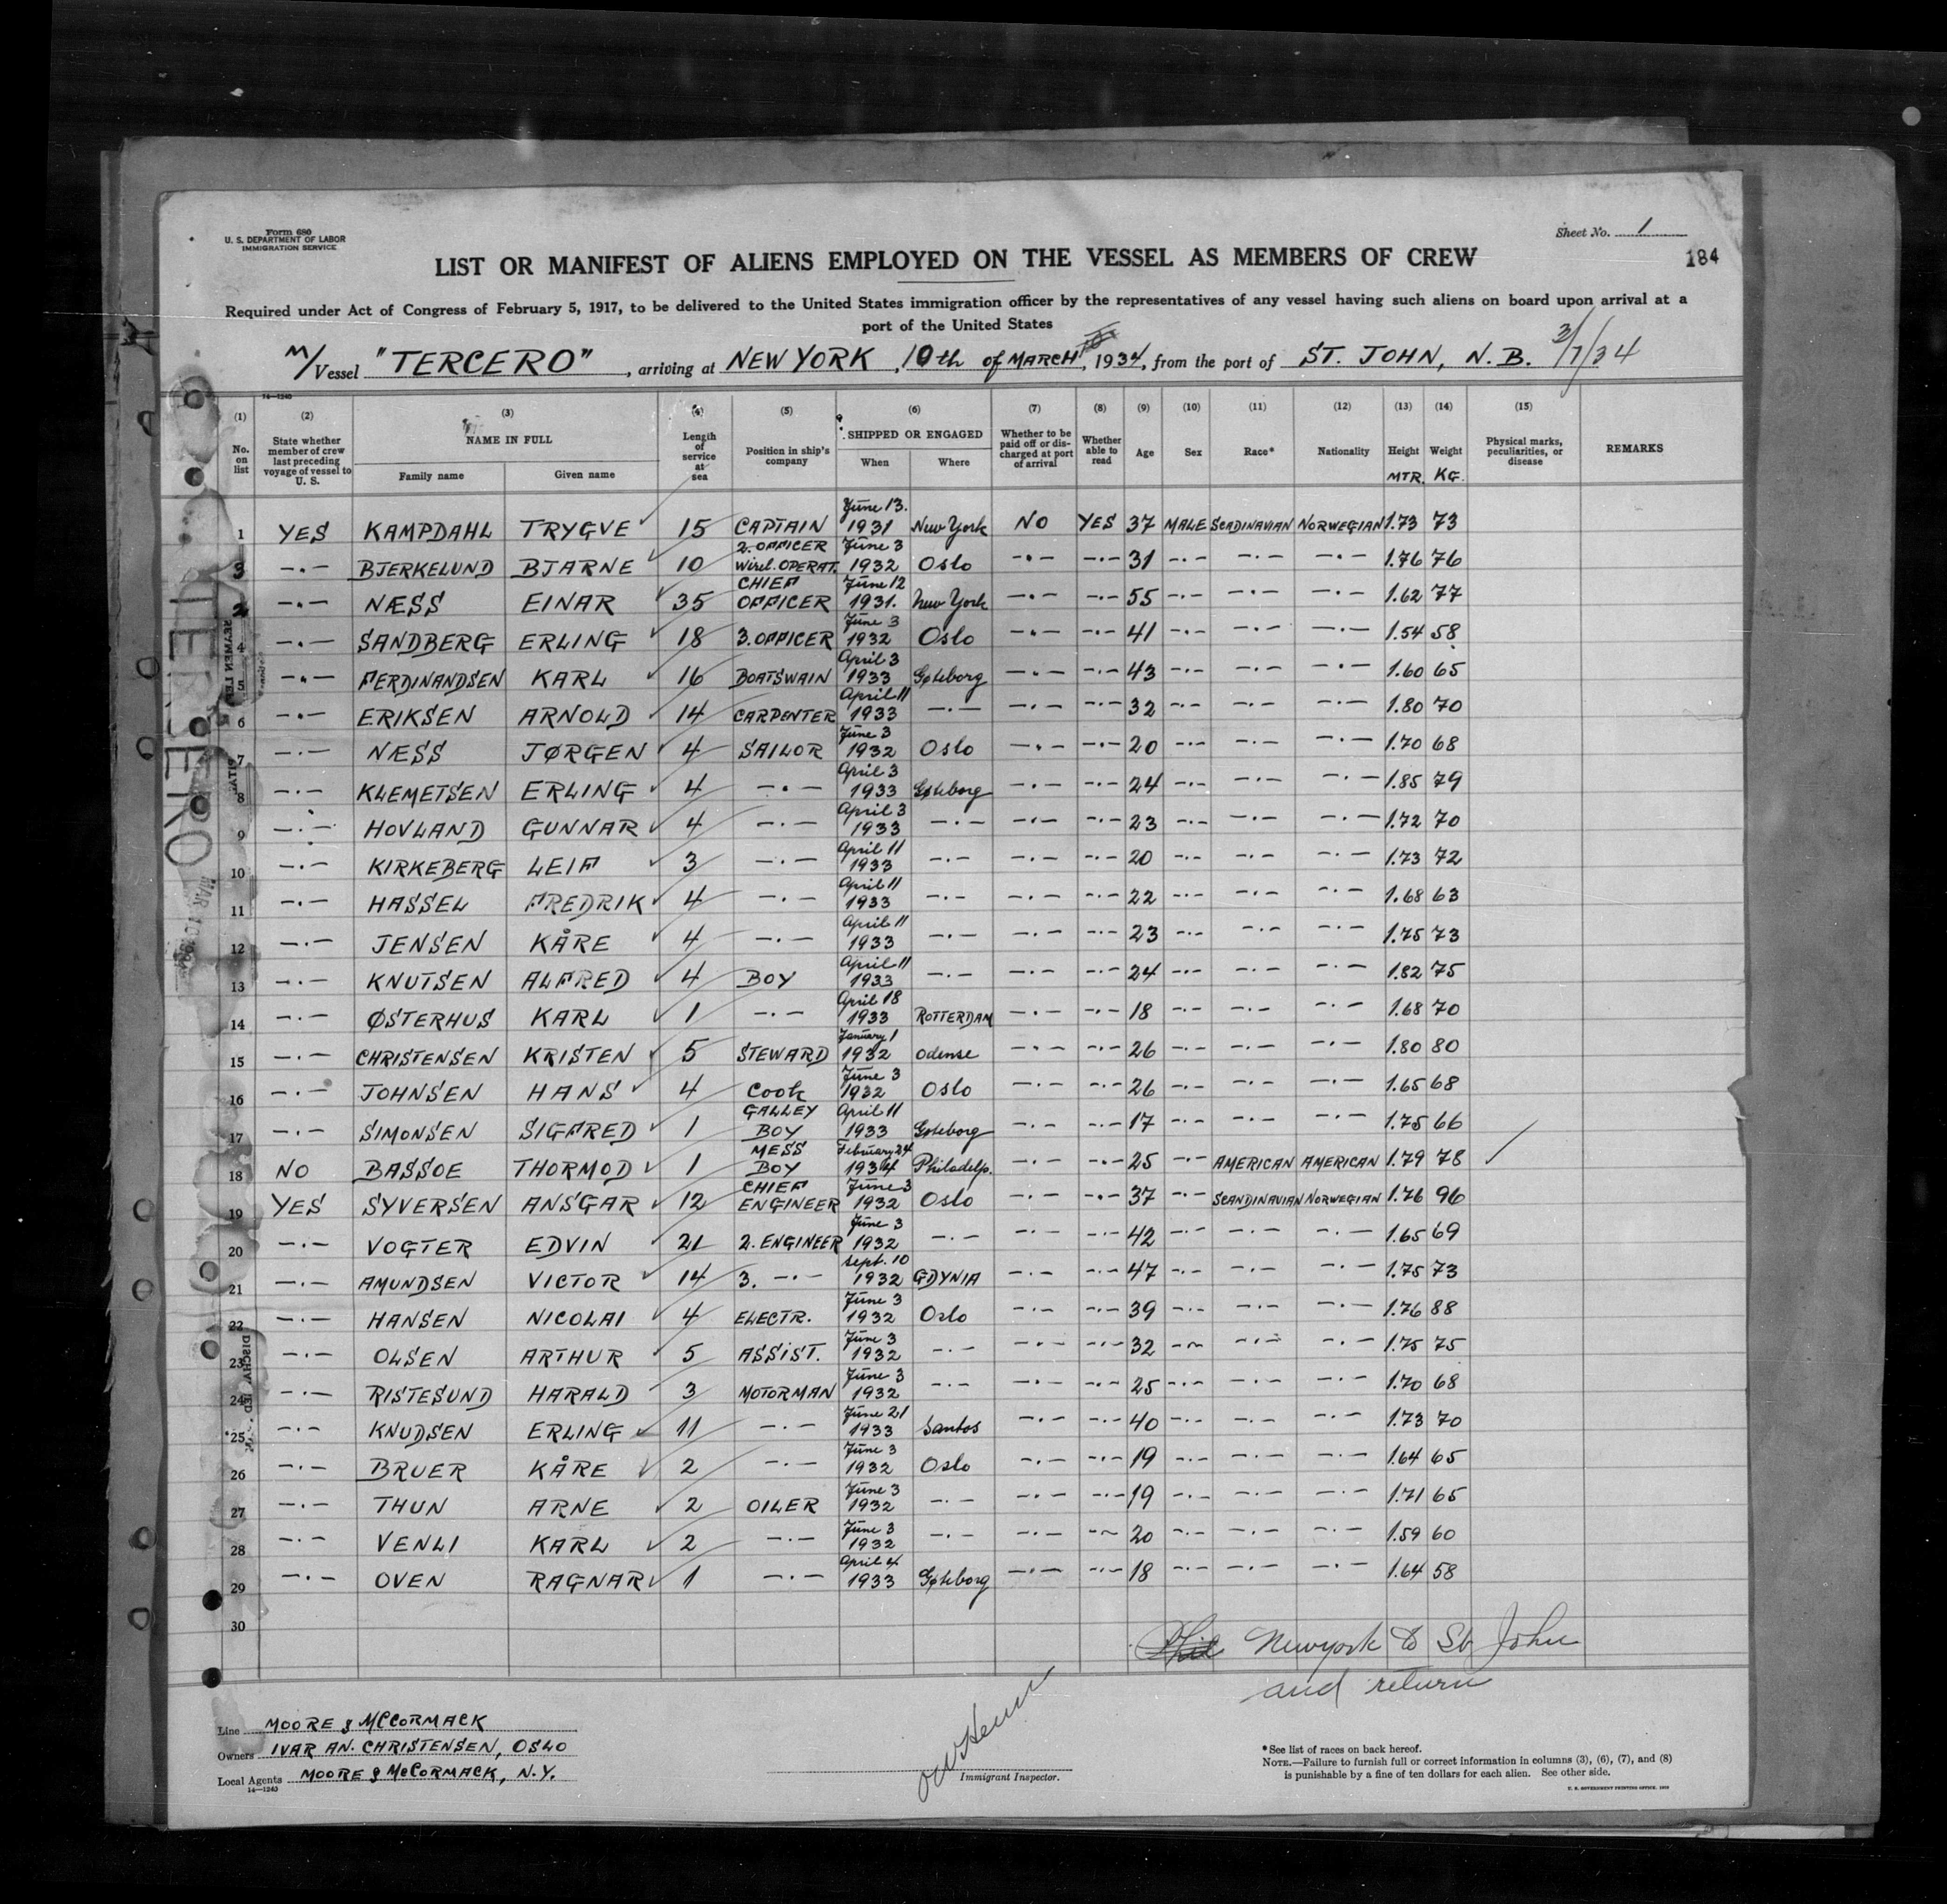 Form 680
U. S. DEPARTMENT OF LABOR
IMMIGRATION SERVICE
Sheet No. 1
184
LIST OR MANIFEST OF ALIENS EMPLOYED ON THE VESSEL AS MEMBERS OF CREW
Required under Act of Congress of February 5, 1917, to be delivered to the United States immigration officer by the representatives of any vessel having such aliens on board upon arrival at a
port of the United States
M/Vessel "TERCERO", arriving at NEW YORK, 10th of MARCH, 1934, from the port of ST. JOHN, N.B. 3/7/34
14—1240
(1) (2) (3) (4) (5) (6) (7) (8) (9) (10) (11) (12) (13) (14) (15)
No. on list State whether member of crew last preceding voyage of vessel to U. S. NAME IN FULL Family name Given name Length of service at sea Position in ship's company SHIPPED OR ENGAGED When Where Whether to be paid off or discharged at port of arrival Whether able to read Age Sex Race* Nationality Height MTR. Weight KG. Physical marks, peculiarities, or disease REMARKS
1 YES KAMPDAHL TRYGVE 15 CAPTAIN June 13. 1931 New York NO YES 37 MALE SCADINAVIAN NORWEGIAN 1.73 73
3 —·— BJERKELUND BJARNE 10 2. OFFICER Wirel. OPERAT. June 3 1932 Oslo —·— —·— 31 —·— —·— —·— 1.76 76
2 —·— NÆSS EINAR 35 CHIEF OFFICER June 12 1931. New York —·— —·— 55 —·— —·— —·— 1.62 77
4 —·— SANDBERG ERLING 18 3. OFFICER June 3 1932 Oslo —·— —·— 41 —·— —·— —·— 1.54 58
5 —·— FERDINANDSEN KARL 16 BOATSWAIN April 3 1933 Gøteborg —·— —·— 43 —·— —·— —·— 1.60 65
6 —·— ERIKSEN ARNOLD 14 CARPENTER April 11 1933 —·— —·— —·— 32 —·— —·— —·— 1.80 70
7 —·— NÆSS JØRGEN 4 SAILOR June 3 1932 Oslo —·— —·— 20 —·— —·— —·— 1.70 68
8 —·— KLEMETSEN ERLING 4 —·— April 3 1933 Gøteborg —·— —·— 24 —·— —·— —·— 1.85 79
9 —·— HOVLAND GUNNAR 4 —·— April 3 1933 —·— —·— —·— 23 —·— —·— —·— 1.72 70
10 —·— KIRKEBERG LEIF 3 —·— April 11 1933 —·— —·— —·— 20 —·— —·— —·— 1.73 72
11 —·— HASSEL FREDRIK 4 —·— April 11 1933 —·— —·— —·— 22 —·— —·— —·— 1.68 63
12 —·— JENSEN KÅRE 4 —·— April 11 1933 —·— —·— —·— 23 —·— —·— —·— 1.75 73
13 —·— KNUTSEN ALFRED 4 BOY April 11 1933 —·— —·— —·— 24 —·— —·— —·— 1.82 75
14 —·— ØSTERHUS KARL 1 —·— April 18 1933 ROTTERDAM —·— —·— 18 —·— —·— —·— 1.68 70
15 —·— CHRISTENSEN KRISTEN 5 STEWARD January 1 1932 Odense —·— —·— 26 —·— —·— —·— 1.80 80
16 —·— JOHNSEN HANS 4 Cook June 3 1932 Oslo —·— —·— 26 —·— —·— —·— 1.65 68
17 —·— SIMONSEN SIGFRED 1 GALLEY BOY April 11 1933 Goteborg —·— —·— 17 —·— —·— —·— 1.75 66
18 NO BASSOE THORMOD 1 MESS BOY February 24 1934 Philadelp. —·— —·— 25 —·— AMERICAN AMERICAN 1.79 78
19 YES SYVERSEN ANSGAR 12 CHIEF ENGINEER June 3 1932 Oslo —·— —·— 37 —·— SCANDINAVIAN NORWEGIAN 1.76 96
20 —·— VOGTER EDVIN 21 2. ENGINEER June 3 1932 —·— —·— —·— 42 —·— —·— —·— 1.65 69
21 —·— AMUNDSEN VICTOR 14 3. —·— Sept. 10 1932 GDYNIA —·— —·— 47 —·— —·— —·— 1.75 73
22 —·— HANSEN NICOLAI 4 ELECTR. June 3 1932 Oslo —·— —·— 39 —·— —·— —·— 1.76 88
23 —·— OLSEN ARTHUR 5 ASSIST. June 3 1932 —·— —·— —·— 32 —·— —·— —·— 1.75 75
24 —·— RISTESUND HARALD 3 MOTORMAN June 3 1932 —·— —·— —·— 25 —·— —·— —·— 1.70 68
25 —·— KNUDSEN ERLING 11 —·— June 21 1933 Santos —·— —·— 40 —·— —·— —·— 1.73 70
26 —·— BRUER KÅRE 2 —·— June 3 1932 Oslo —·— —·— 19 —·— —·— —·— 1.64 65
27 —·— THUN ARNE 2 OILER June 3 1932 —·— —·— —·— 19 —·— —·— —·— 1.71 65
28 —·— VENLI KARL 2 —·— June 3 1932 —·— —·— —·— 20 —·— —·— —·— 1.59 60
29 —·— OVEN RAGNAR 1 —·— April 4 1933 Gøteborg —·— —·— 18 —·— —·— —·— 1.64 58
30
Newyork to St John
and return
Line MOORE & McCORMACK
Owners IVAR AN. CHRISTENSEN, OSLO
Local Agents MOORE & McCORMACK, N.Y.
14—1240
Immigrant Inspector.
*See list of races on back hereof.
NOTE.—Failure to furnish full or correct information in columns (3), (6), (7), and (8)
is punishable by a fine of ten dollars for each alien. See other side.
U. S. GOVERNMENT PRINTING OFFICE
TERCERO